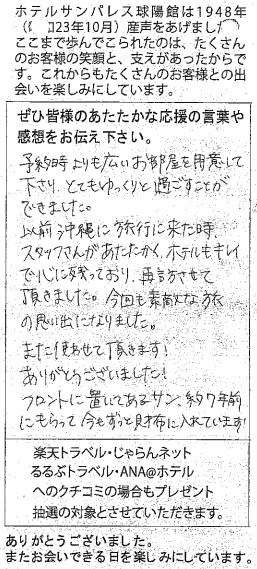 ホテルサンパレス球陽館は1948年
23年10月）産声をあげまし
ここまで歩んでこられたのは、たくさん
のお客様の笑顔と、支えがあったからで
す。これからもたくさんのお客様との出
会いを楽しみにしています。
ぜひ皆様のあたたかな応援の言葉や
感想をお伝え下さい。
予約時よりも広いお部屋を用意して
下さり、とてもゆっくりと過ごすことが
できました。
以前沖縄に旅行に来た時、
スタッフさんがあたたかく、ホテルもキレイ
で心に残っており、再訪させて
頂きました。今回も素敵な旅
の思い出になりました。
また使わせて頂きます!
ありがとうございました!
フロントに置いてあるサン、約7年前
にもらって今もずっと財布に入れています!
楽天トラベル・じゃらんネット
るるぶトラベル・ANA@ホテル
へのクチコミの場合もプレゼント
抽選の対象とさせていただきます。
ありがとうございました。
またお会いできる日を楽しみにしています。